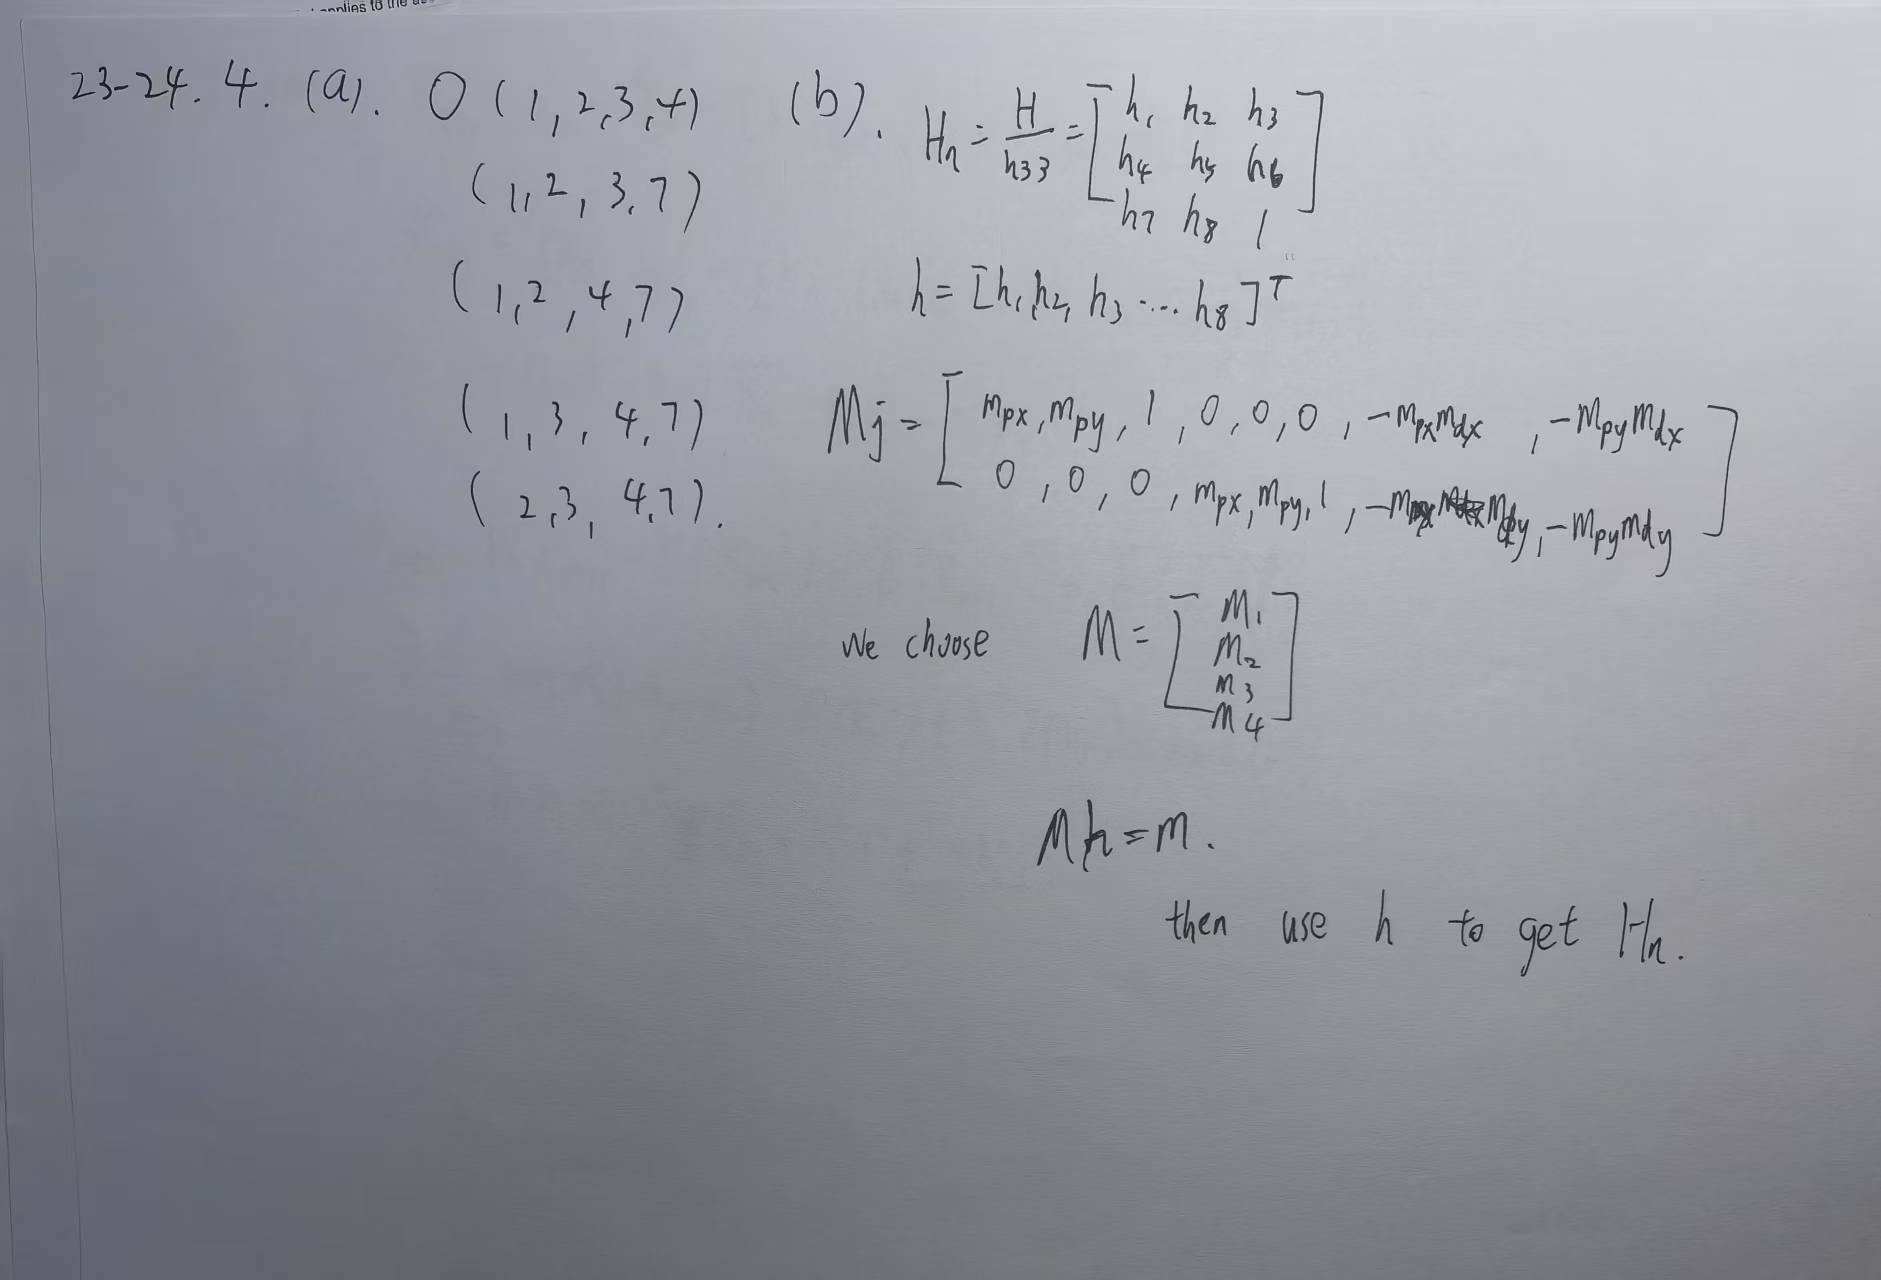 applies to the
23-24. 4. (a). O (1, 2, 3, 4)
(1, 2, 3, 7)
(1, 2, 4, 7)
(1, 3, 4, 7)
(2, 3, 4, 7).
(b). Hn = H / h33 = [ h1 h2 h3
h4 h5 h6
h7 h8 1 ]
h = [h1, h2, h3 .... h8]ᵀ
Mj = [ mpx, mpy, 1, 0, 0, 0, -mpxmdx, -mpymdx
0, 0, 0, mpx, mpy, 1, -mpxmdy, -mpymdy ]
We choose M = [ M1
M2
M3
M4 ]
Mh = m.
then use h to get Hn.